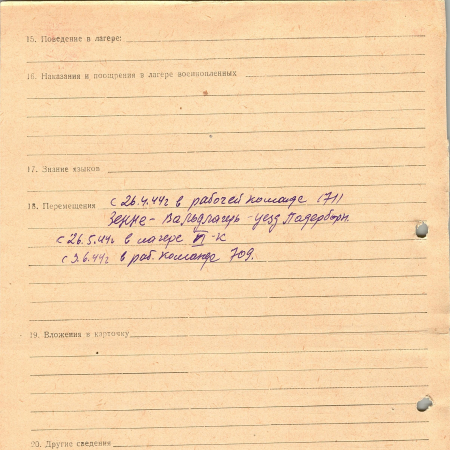 15. Поведение в лагере:
16. Наказания и поощрения в лагере военнопленных
17. Знание языков
18. Перемещения с 26.4.44г в рабочей команде (71)
Зенне-Вальдлагерь-уезд Падерборн.
с 26.5.44г в лагере VI-К
с 3.6.44г в раб. команде 709.
19. Вложения в карточку
20. Другие сведения